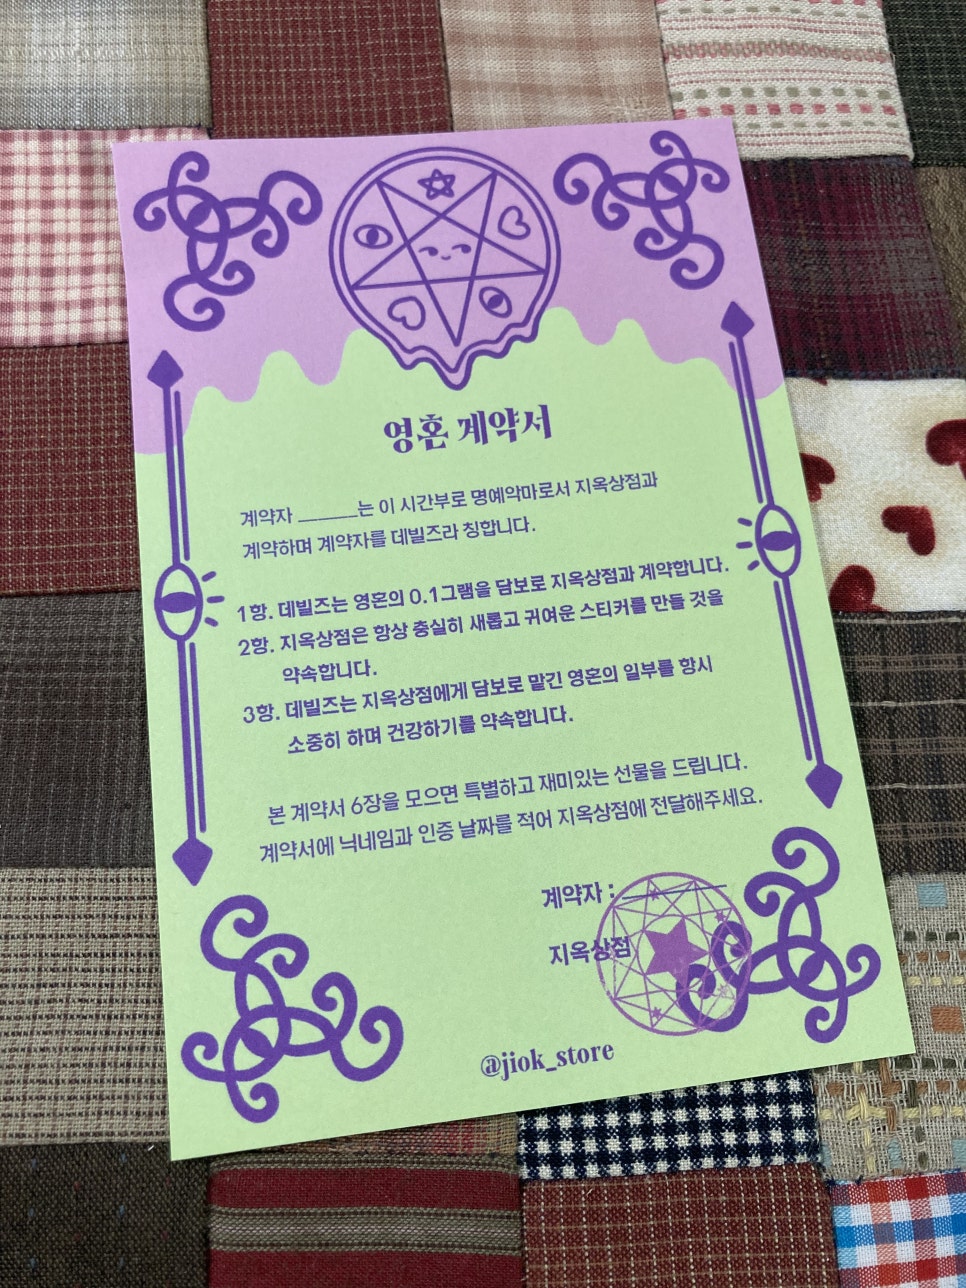 영혼 계약서
계약자 ______는 이 시간부로 명예악마로서 지옥상점과
계약하며 계약자를 데빌즈라 칭합니다.
1항. 데빌즈는 영혼의 0.1그램을 담보로 지옥상점과 계약합니다.
2항. 지옥상점은 항상 충실히 새롭고 귀여운 스티커를 만들 것을
약속합니다.
3항. 데빌즈는 지옥상점에게 담보로 맡긴 영혼의 일부를 항시
소중히 하며 건강하기를 약속합니다.
본 계약서 6장을 모으면 특별하고 재미있는 선물을 드립니다.
계약서에 닉네임과 인증 날짜를 적어 지옥상점에 전달해주세요.
계약자 : ________
지옥상점
@jiok_store